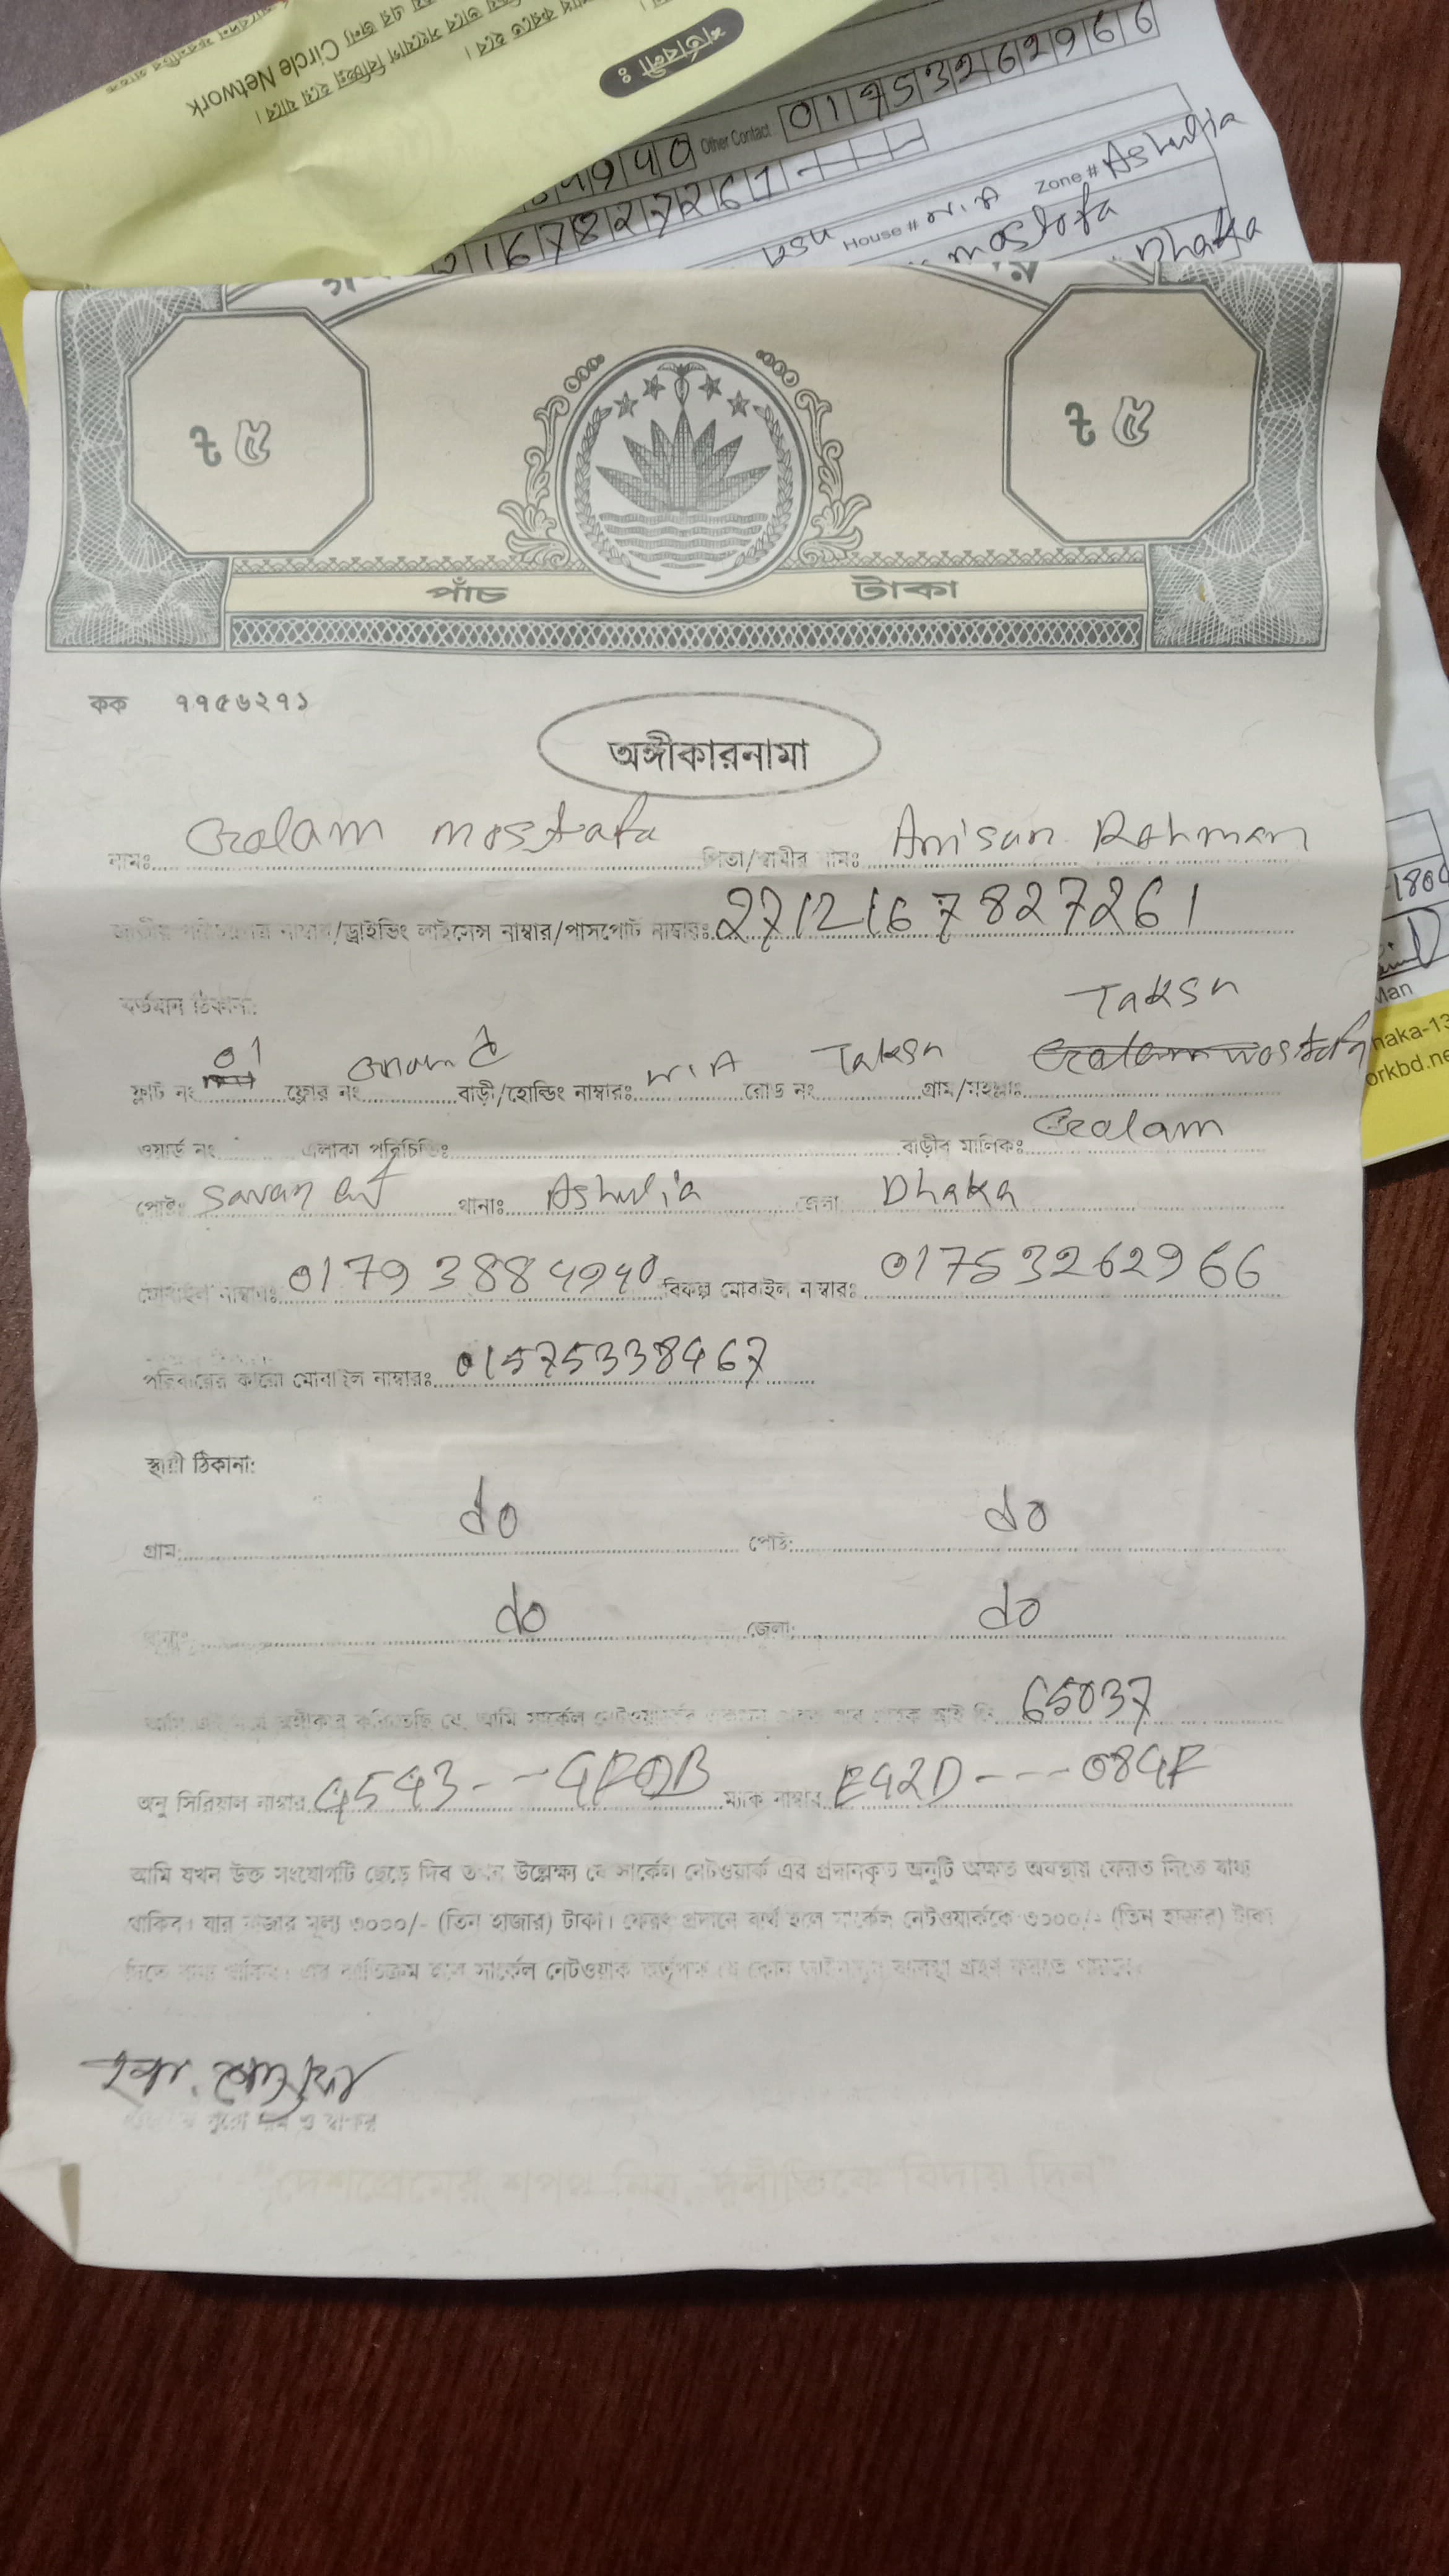 শর্তাবলী :
Circle Network
Other Contact 01753262966
House # N.A Zone # Ashulia
mostofa
Dhaka
৳ ৫ ৳ ৫
পাঁচ টাকা
কক ৭৭৫৬২৭১
অঙ্গীকারনামা
নামঃ Golam mostafa পিতা/স্বামীর নামঃ Anisur Rahman
জাতীয় পরিচয়পত্র নাম্বার/ড্রাইভিং লাইসেন্স নাম্বার/পাসপোর্ট নাম্বারঃ 2712167827261
বর্তমান ঠিকানা:
Taksu
ফ্লাট নং 01 ফ্লোর নং বাড়ী/হোল্ডিং নাম্বারঃ N.A রোড নং Taksu গ্রাম/মহল্লাঃ
ওয়ার্ড নং এলাকা পরিচিতিঃ বাড়ীর মালিকঃ Golam
পোষ্টঃ Savar থানাঃ Ashulia জেলা Dhaka
মোবাইল নাম্বারঃ 01793884940 বিকল্প মোবাইল নাম্বারঃ 01753262966
পরিবারের কারো মোবাইল নাম্বারঃ 01575338467
স্থায়ী ঠিকানা:
গ্রাম: do পোষ্ট: do
থানাঃ do জেলা: do
অঙ্গীকার করিতেছি যে, আমি সার্কেল 65037
অনু সিরিয়াল নাম্বার 4543---4F0B ম্যাক নাম্বার E42D----084F
আমি যখন উক্ত সংযোগটি ছেড়ে দিব তখন উল্লেক্ষ্য যে সার্কেল নেটওয়ার্ক এর প্রদানকৃত অনুটি অক্ষত অবস্থায় ফেরত দিতে বাধ্য
থাকিব। যার বাজার মূল্য ৩০০০/- (তিন হাজার) টাকা। ফেরৎ প্রদানে ব্যর্থ হলে সার্কেল নেটওয়ার্ককে ৩০০০/- (তিন হাজার) টাকা
দিতে বাধ্য থাকিব। এর ব্যতিক্রম হলে সার্কেল নেটওয়াক কর্তৃপক্ষ যে কোন আইনানুগ ব্যবস্থা গ্রহণ করতে পারবে।
"দেশপ্রেমের শপথ নিন, দুর্নীতিকে বিদায় দিন"